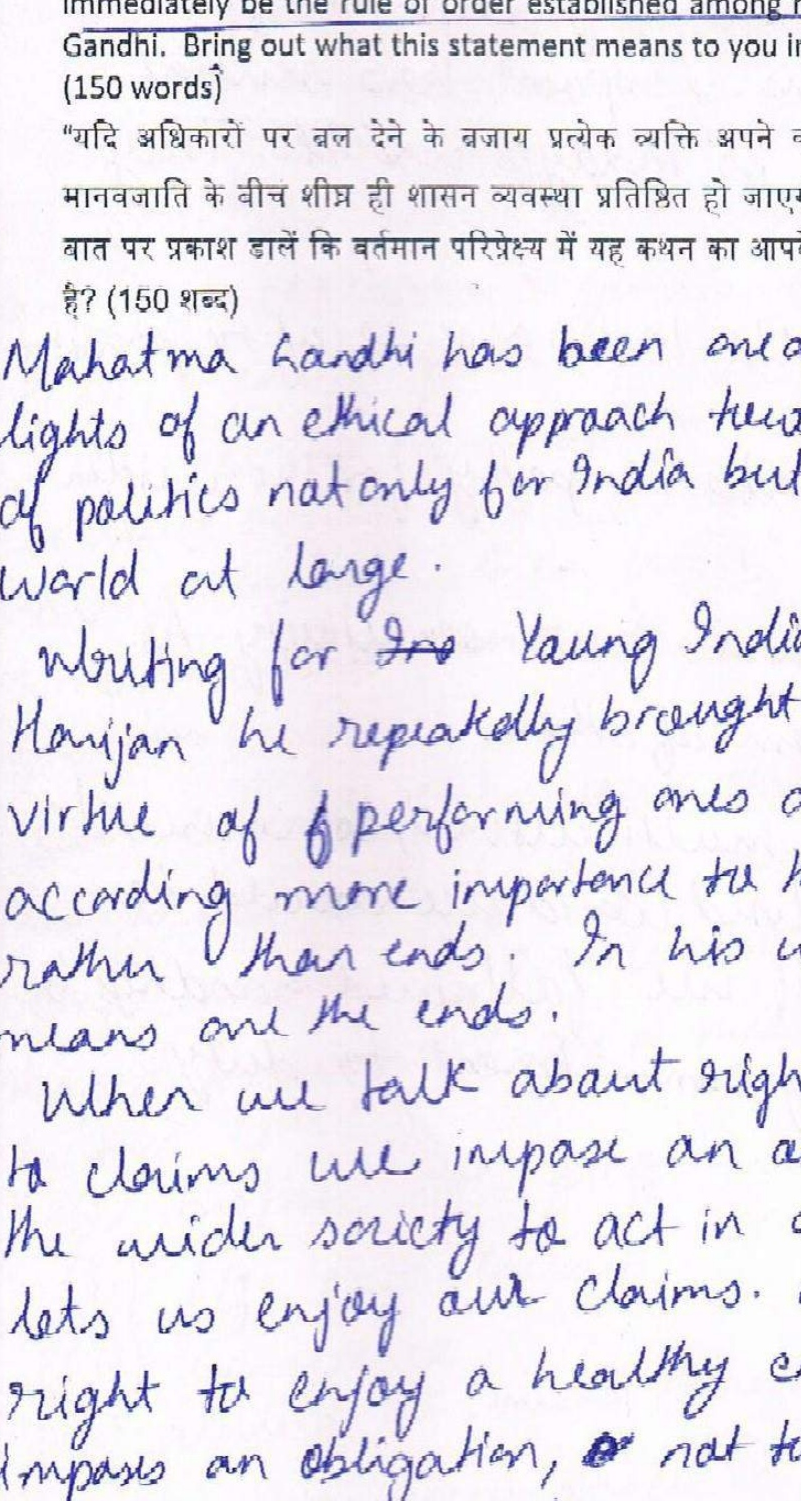 immediately be the rule of order established among
Gandhi. Bring out what this statement means to you in
(150 words)
“यदि अधिकारों पर बल देने के बजाय प्रत्येक व्यक्ति अपने
मानवजाति के बीच शीघ्र ही शासन व्यवस्था प्रतिष्ठित हो
बात पर प्रकाश डालें कि वर्तमान परिप्रेक्ष्य में यह कथन का
है? (150 शब्द)
Mahatma Gandhi has been one
lights of an ethical approach
of politics not only for India but
World at large.
Writing for Young India
Harijan he repeatedly brought
virtue of performing ones
according more importance to
rather than ends. In his
means are the ends.
When we talk about
to claims we impose an
the wider society to act in
lets us enjoy our claims.
right to enjoy a healthy
imposes an obligation, not